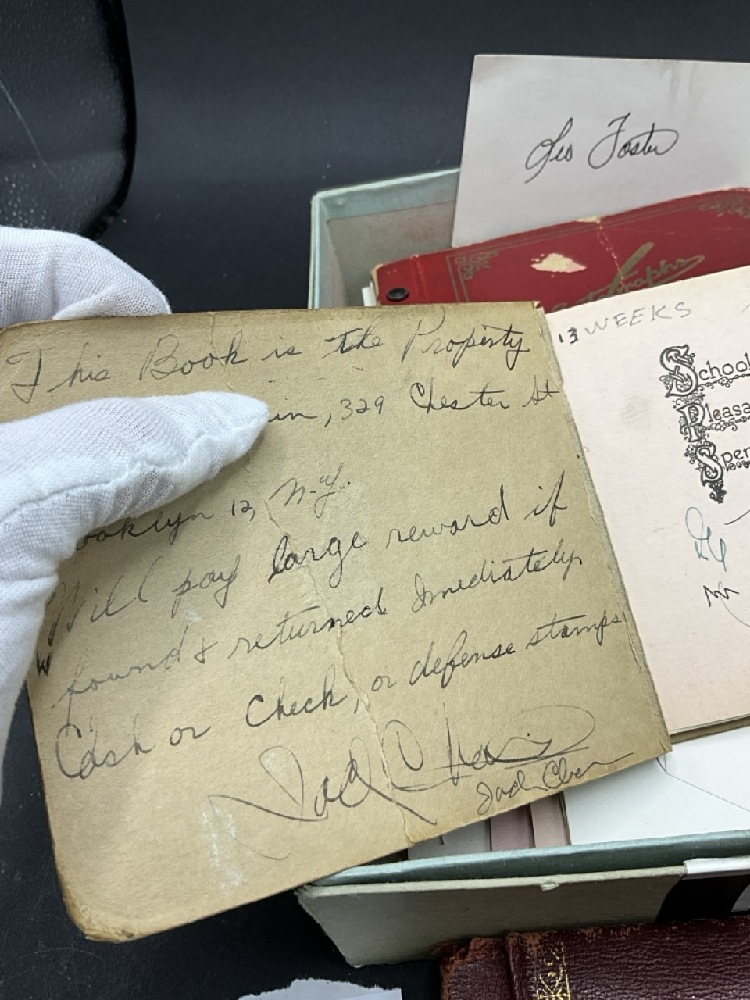 Geo Foster
Autographs
13 WEEKS
School
Pleasa
Spen
This Book is the Property
in, 329 Chester St
ooklyn 12, N-Y.
Will pay large reward if
found & returned Imediately
Cash or Check, or defense stamps
Jack Chain